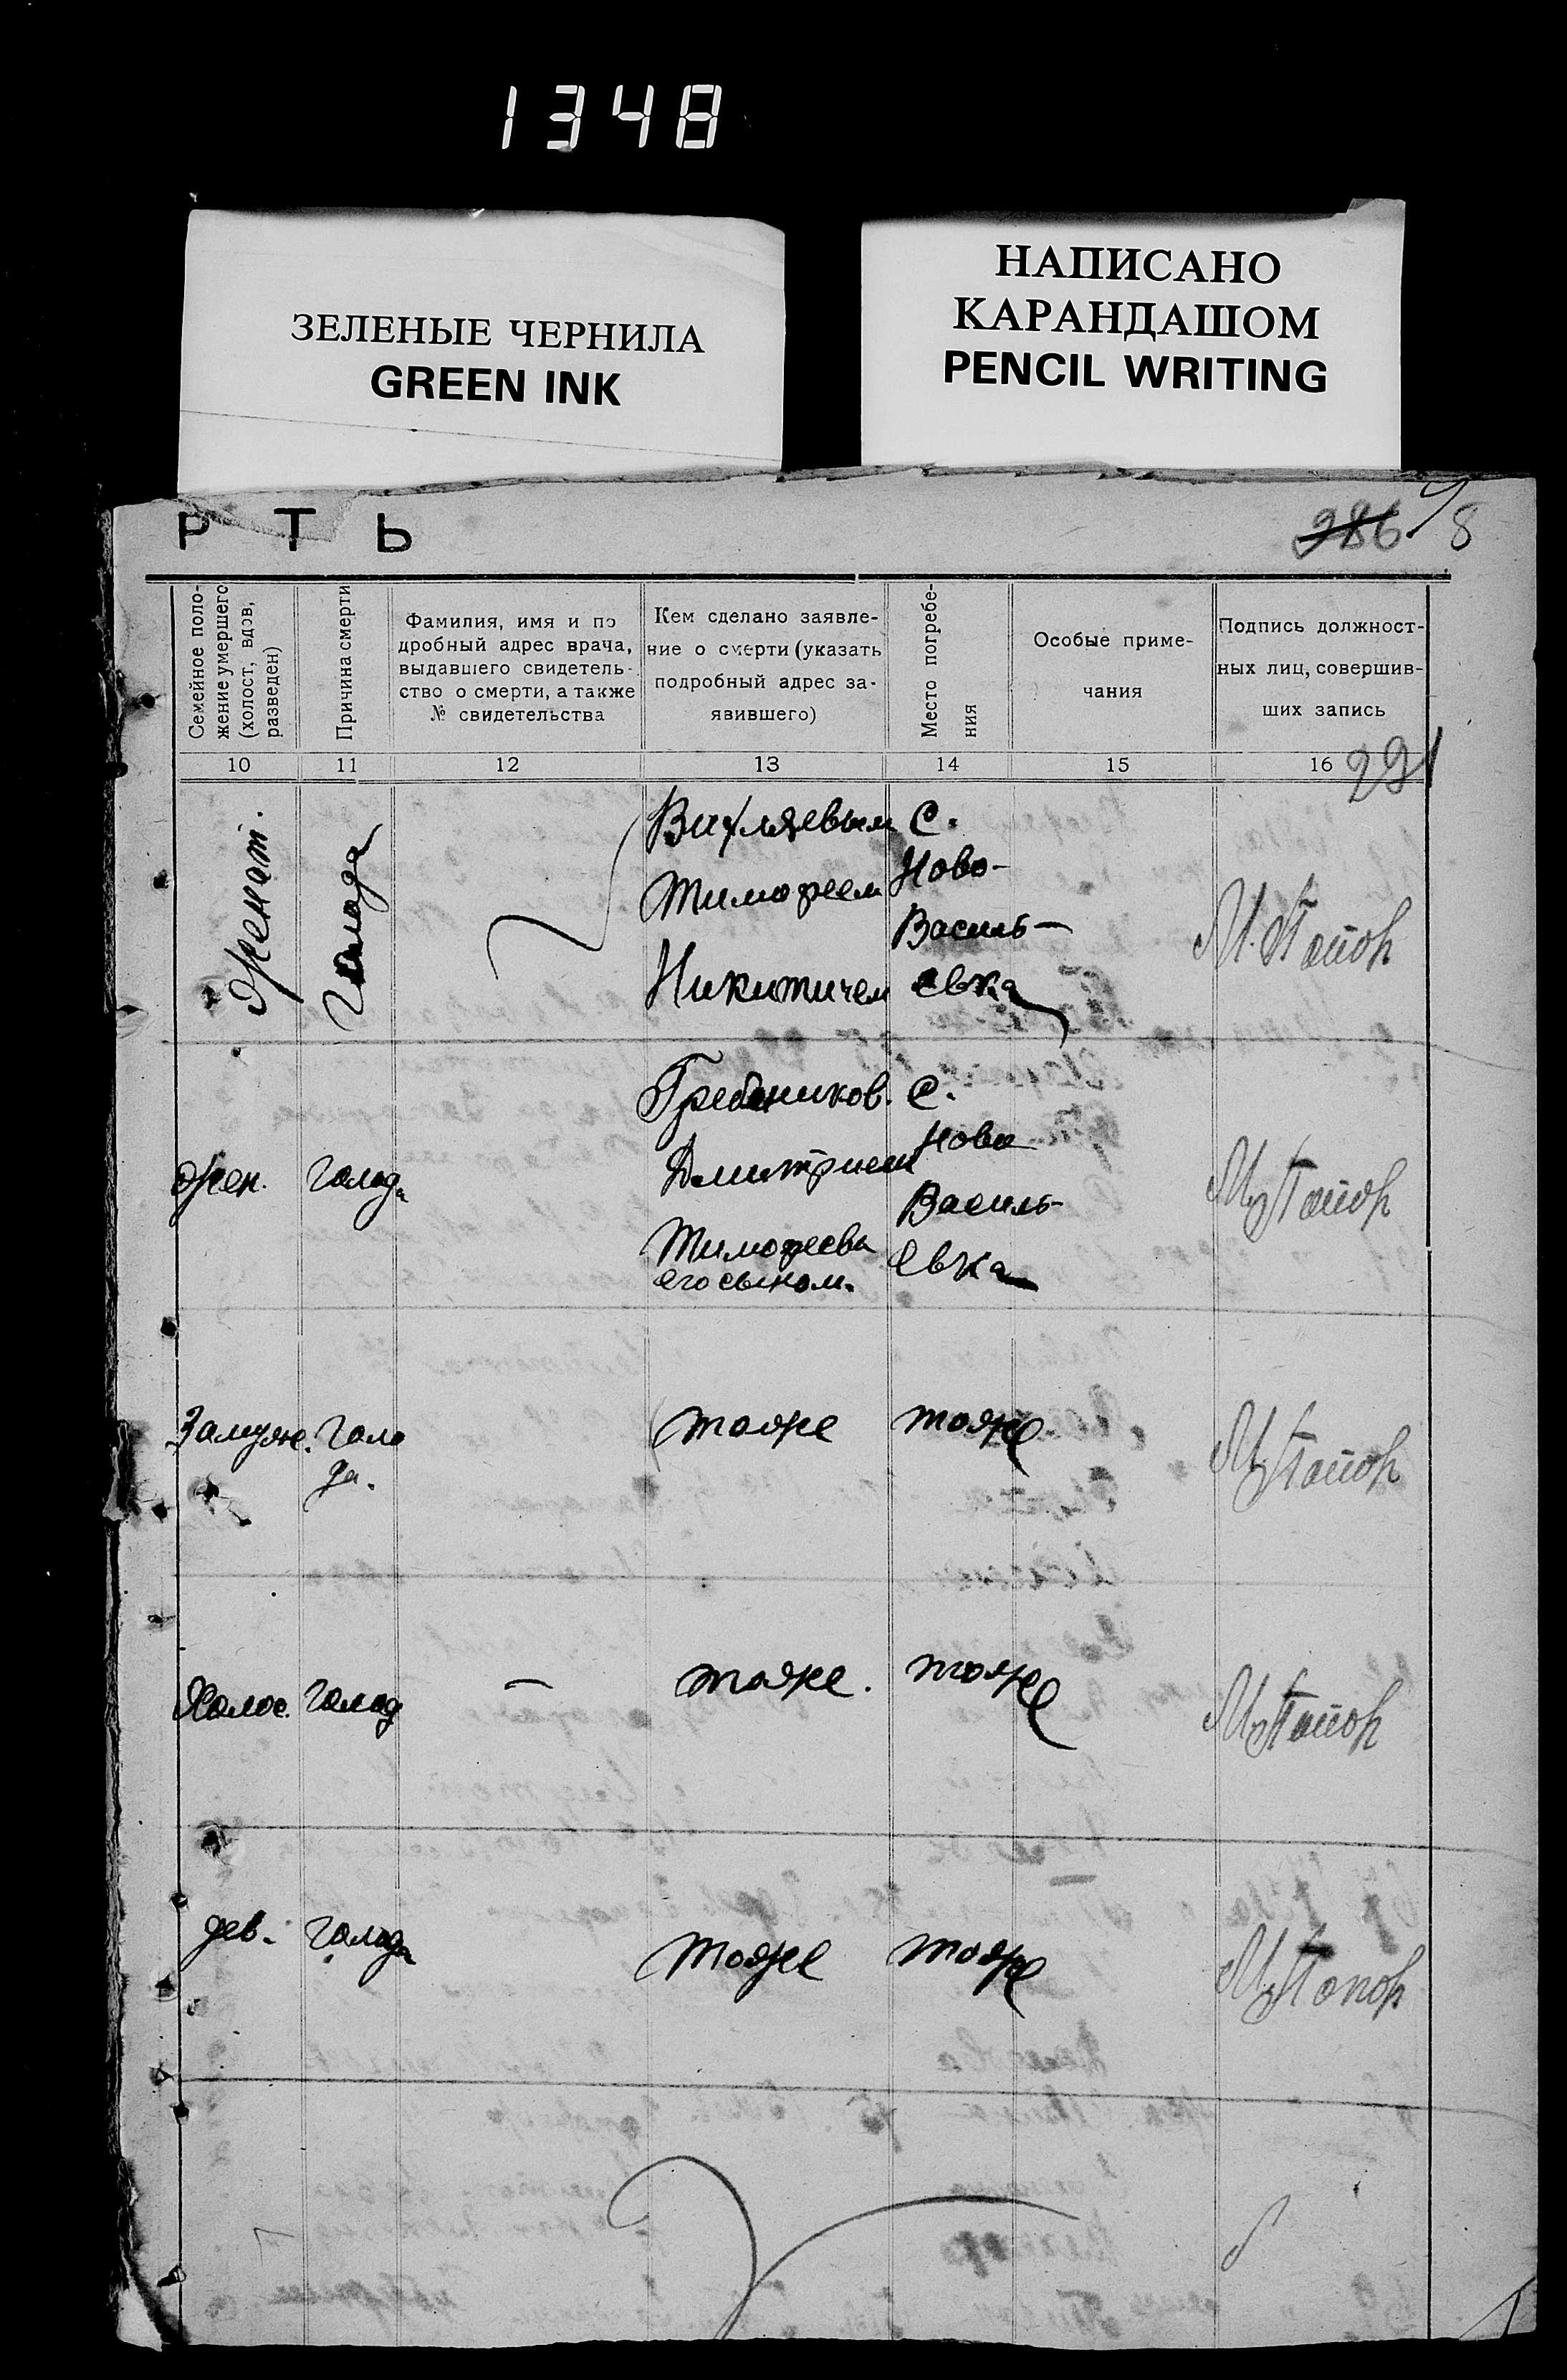 1348
ЗЕЛЕНЫЕ ЧЕРНИЛА
GREEN INK
НАПИСАНО
КАРАНДАШОМ
PENCIL WRITING
РТЬ
286 8
Семейное поло-
жение умершего
(холост, вдов,
разведен)
Причина смерти
Фамилия, имя и по
дробный адрес врача,
выдавшего свидетель-
ство о смерти, а также
№ свидетельства
Кем сделано заявле-
ние о смерти (указать
подробный адрес за-
явившего)
Место погребе-
ния
Особые приме-
чания
Подпись должност-
ных лиц, совершив-
ших запись
10 11 12 13 14 15 16
221
Женат.
Голода
Вихляевым
Тимофеем
Никитичем
С.
Ново-
Василь-
евка
М. Топор
Жен.
Голода
Гребеников.
Дмитрием
Тимофеева
его сыном.
С.
Ново
Василь-
евка
М. Топор
Замужн.
Голо
да.
тоже
тоже
М. Топор
Холос.
голод
—
тоже.
тоже
М. Топор
дев.
голода
тоже
тоже
М. Топор